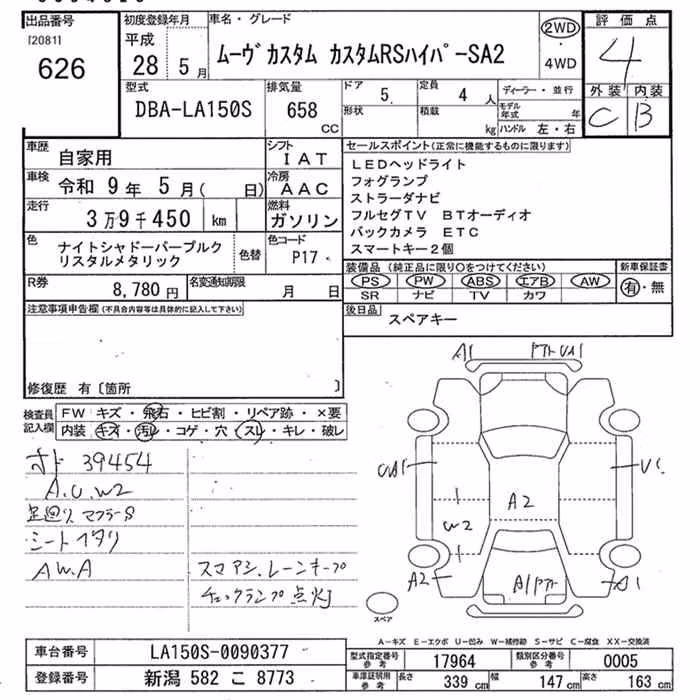 出品番号
120811
626
初度登録年月
平成
28 5月
車名・グレード
ムーヴカスタム カスタムRSハイパーSA2
2WD
・
4WD
評価点
4
外装 内装
C B
型式
DBA-LA150S
排気量
658 CC
ドア
5
定員
4 人
形状
積載
kg
ディーラー・並行
モデル年式 年
ハンドル 左・右
車歴
自家用
シフト
IAT
車検
令和 9年 5月( 日)
冷房
AAC
走行
3万9千450 km
燃料
ガソリン
色
ナイトシャドーパープルク
リスタルメタリック
色替
色コード
P17
R券
8,780円
名変通知期限
月 日
セールスポイント(正常に機能するものに限ります)
LEDヘッドライト
フォグランプ
ストラーダナビ
フルセグTV BTオーディオ
バックカメラ ETC
スマートキー2個
装備品(純正品に限り○をつけてください)
PS PW ABS エアB AW
SR ナビ TV カワ
新車保証書
有・無
後日品
スペアキー
注意事項申告欄(不具合内容等は具体的に記入して下さい)
修復歴 有〔箇所 〕
検査員
記入欄
FW キズ・飛石・ヒビ割・リペア跡・×要
内装 キズ・汚レ・コゲ・穴・スレ・キレ・破レ
オド 39454
A.U.W2
足廻り マフラーS
シートイタリ
AW.A
スマアシ.レーンキープ
チェックランプ点灯
A1
U1
V1
W2
A2
A2
A1
スペア
A-キズ E-エクボ U-凹み W-補修跡 S-サビ C-腐食 XX-交換済
車台番号
LA150S-0090377
登録番号
新潟 582 こ 8773
型式指定番号
参考
17964
類別区分番号
参考
0005
車庫証明用
参考
長さ
339 cm
幅
147 cm
高さ
163 cm